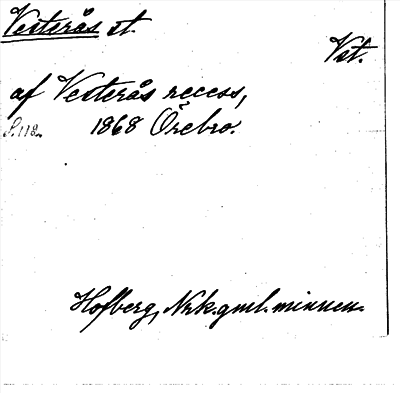 Vesterås st.
Vst.
af Vesterås recess,
S. 118. 1868 Örebro.
Hofberg, Nrk. gml. minnen.